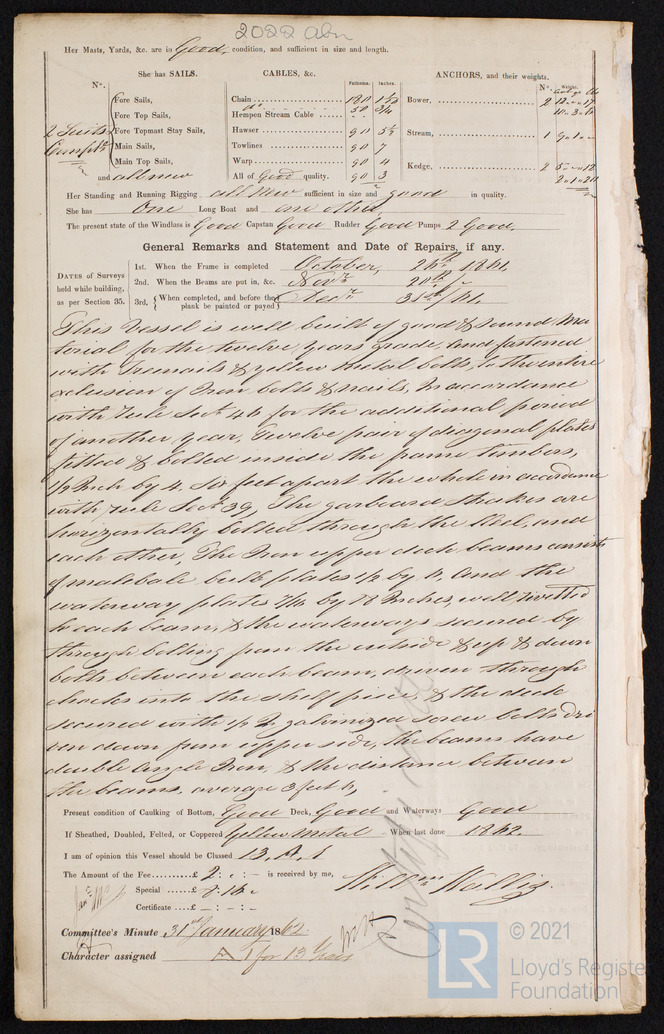 2022 abn
Her Masts, Yards, &c. are in Good, condition, and sufficient in size and length.
She has SAILS. CABLES, &c. ANCHORS, and their weights.
No. Fathoms. Inches. No. Weight.
Fore Sails, Chain 180 Bower, 2
Fore Top Sails, Hempen Stream Cable
2 Suits Fore Topmast Stay Sails, Hawser 90 Stream, 1
Compte Main Sails, Towlines 90 7
Main Top Sails, Warp 90 4 Kedge, 2
and all new All of Good quality. 90 3
Her Standing and Running Rigging all New sufficient in size and good in quality.
She has One Long Boat and one other
The present state of the Windlass is Good Capstan Good Rudder Good Pumps 2 Good.
General Remarks and Statement and Date of Repairs, if any.
DATES of Surveys held while building, as per Section 35.
1st. When the Frame is completed October, 1861.
2nd. When the Beams are put in, &c. Novr
3rd. When completed, and before the plank be painted or payed Decr 31st /61.
This Vessel is well built of good & sound Ma
terial for the twelve years grade, and fastened
with Treenails & yellow metal bolts, to the entire
exclusion of Iron bolts & nails, in accordance
with rule Sect 46 for the additional period
of another year, Twelve pair of diagonal plates
fitted & bolted inside the frame timbers,
1/2 Inch by 4. Six feet apart the whole in accordance
with rule Sect 39, The garboard strakes are
horizontally bolted through the Keel, and
each other, The Iron upper deck beams consists
of bulb plates and the
waterway plates Inches, well rivetted
to each beam, & the waterways secured by
through bolting from the outside & up & down
bolts between each beam, driven through
chocks into the shelf piece, & the deck
secured with galvanized screw bolts dri
ven down from upper side, the beams have
double Angle Iron, & the distance between
the beams, average 3 feet
Present condition of Caulking of Bottom, Good Deck, Good and Waterways Good
If Sheathed, Doubled, Felted, or Coppered Yellow Metal When last done 1862.
I am of opinion this Vessel should be Classed 13. A. 1
The Amount of the Fee £ 2 : : – is received by me,
Special £ : : Willm
Certificate £ – : – : –
Committee's Minute 31st January 1862.
Character assigned A 1 for 13 Years
© 2021
LR Lloyd's Register
Foundation